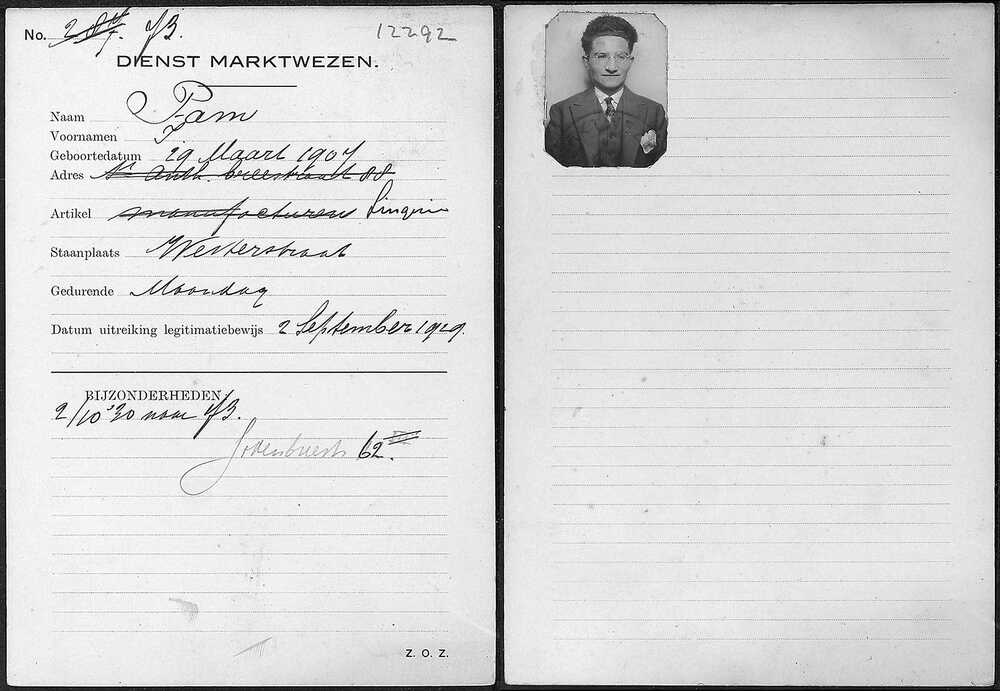 No. 73.
12292
DIENST MARKTWEZEN.
Naam Pam
Voornamen I
Geboortedatum 29 Maart 1907
Adres St Anth. breestraat 88
Artikel manufacturen Lingerie
Staanplaats Westerstraat
Gedurende Maandag
Datum uitreiking legitimatiebewijs 2 September 1929.
BIJZONDERHEDEN
2/10 '30 naar 73.
Jodenbreestr 62
Z. O. Z.